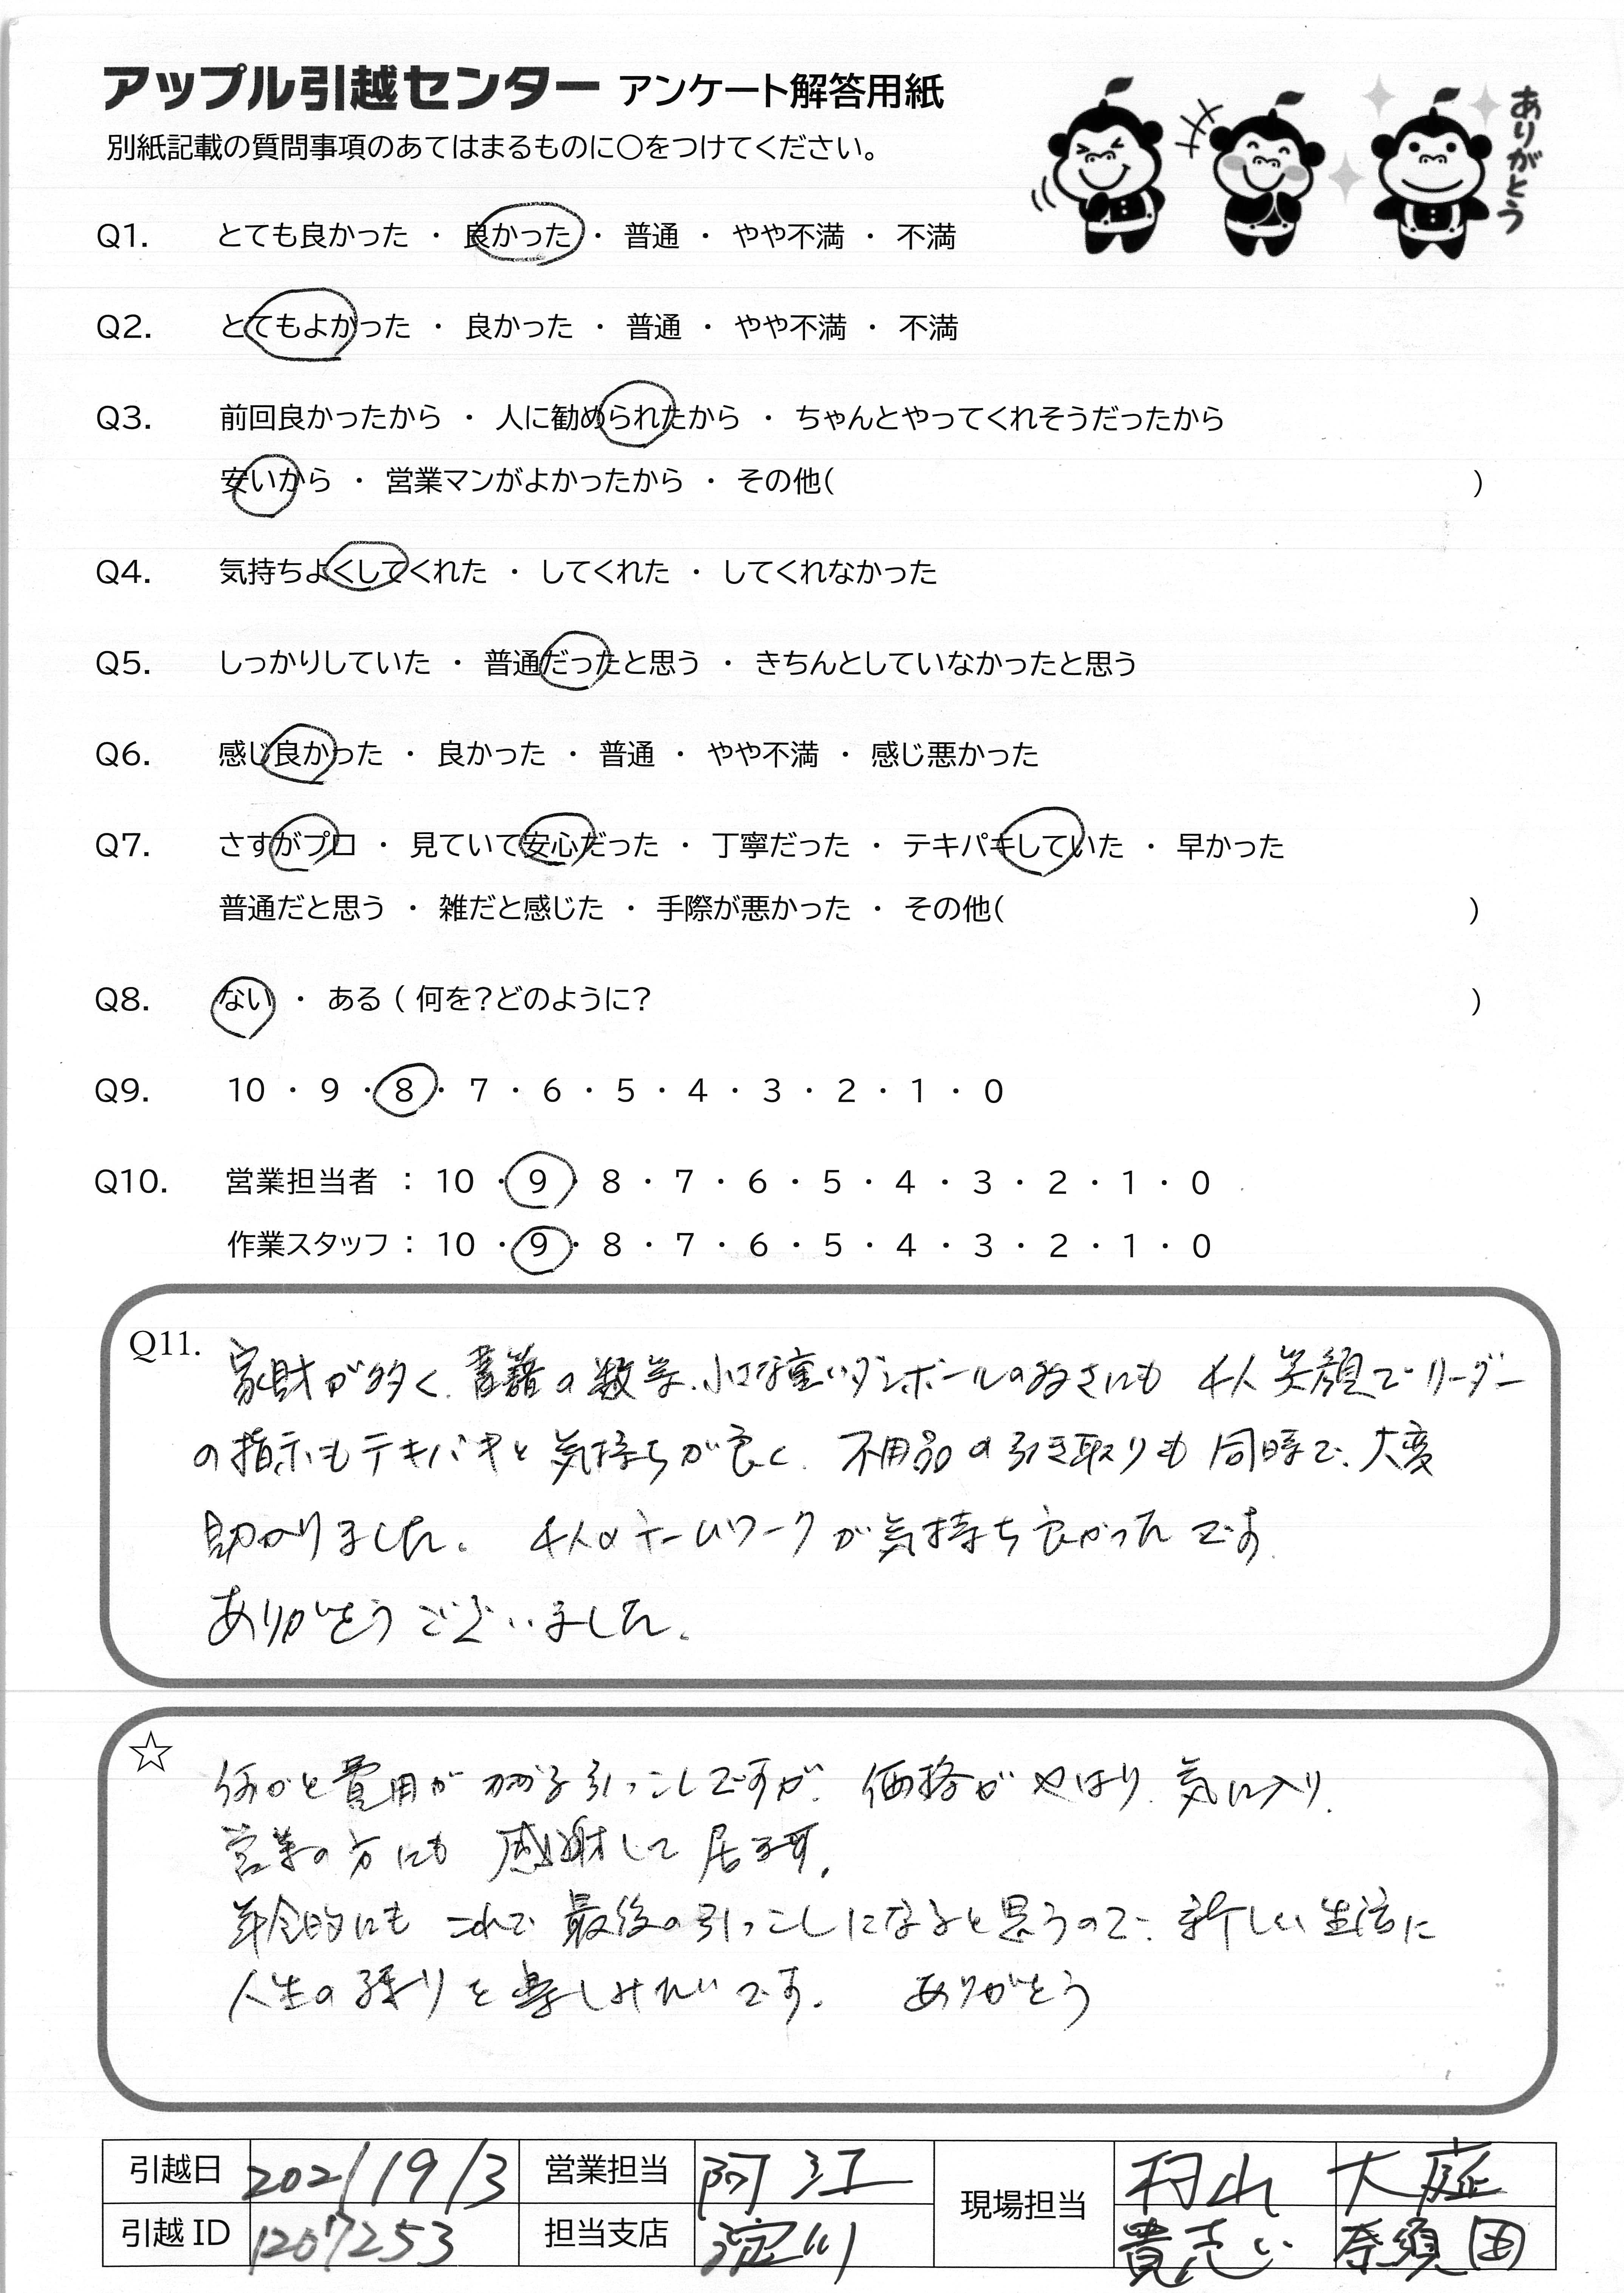 アップル引越センター アンケート解答用紙
別紙記載の質問事項のあてはまるものに○をつけてください。
ありがとう
Q1. とても良かった ・ 良かった ・ 普通 ・ やや不満 ・ 不満
Q2. とてもよかった ・ 良かった ・ 普通 ・ やや不満 ・ 不満
Q3. 前回良かったから ・ 人に勧められたから ・ ちゃんとやってくれそうだったから
安いから ・ 営業マンがよかったから ・ その他( )
Q4. 気持ちよくしてくれた ・ してくれた ・ してくれなかった
Q5. しっかりしていた ・ 普通だったと思う ・ きちんとしていなかったと思う
Q6. 感じ良かった ・ 良かった ・ 普通 ・ やや不満 ・ 感じ悪かった
Q7. さすがプロ ・ 見ていて安心だった ・ 丁寧だった ・ テキパキしていた ・ 早かった
普通だと思う ・ 雑だと感じた ・ 手際が悪かった ・ その他( )
Q8. ない ・ ある ( 何を?どのように? )
Q9. 10 ・ 9 ・ 8 ・ 7 ・ 6 ・ 5 ・ 4 ・ 3 ・ 2 ・ 1 ・ 0
Q10. 営業担当者 : 10 ・ 9 ・ 8 ・ 7 ・ 6 ・ 5 ・ 4 ・ 3 ・ 2 ・ 1 ・ 0
作業スタッフ : 10 ・ 9 ・ 8 ・ 7 ・ 6 ・ 5 ・ 4 ・ 3 ・ 2 ・ 1 ・ 0
Q11. 家財が多く、書籍の数等、小さな重いダンボールの多さにも 4人笑顔で リーダー
の指示もテキパキと気持ちが良く、不用品の引き取りも同時で、大変
助かりました。 4人のチームワークが気持ち良かったです。
ありがとうございました。
☆ 何かと費用がかかる引っこしですが、価格がやはり、気に入り、
営業の方にも 感謝して居ます。
年令的にも これで最後の引っこしになると思うので、新しい生活に
人生の残りを楽しみたいです。 ありがとう
引越日 2021/9/3 営業担当 阿江 現場担当 村山 大庭
引越ID 1207253 担当支店 淀川 奈須田